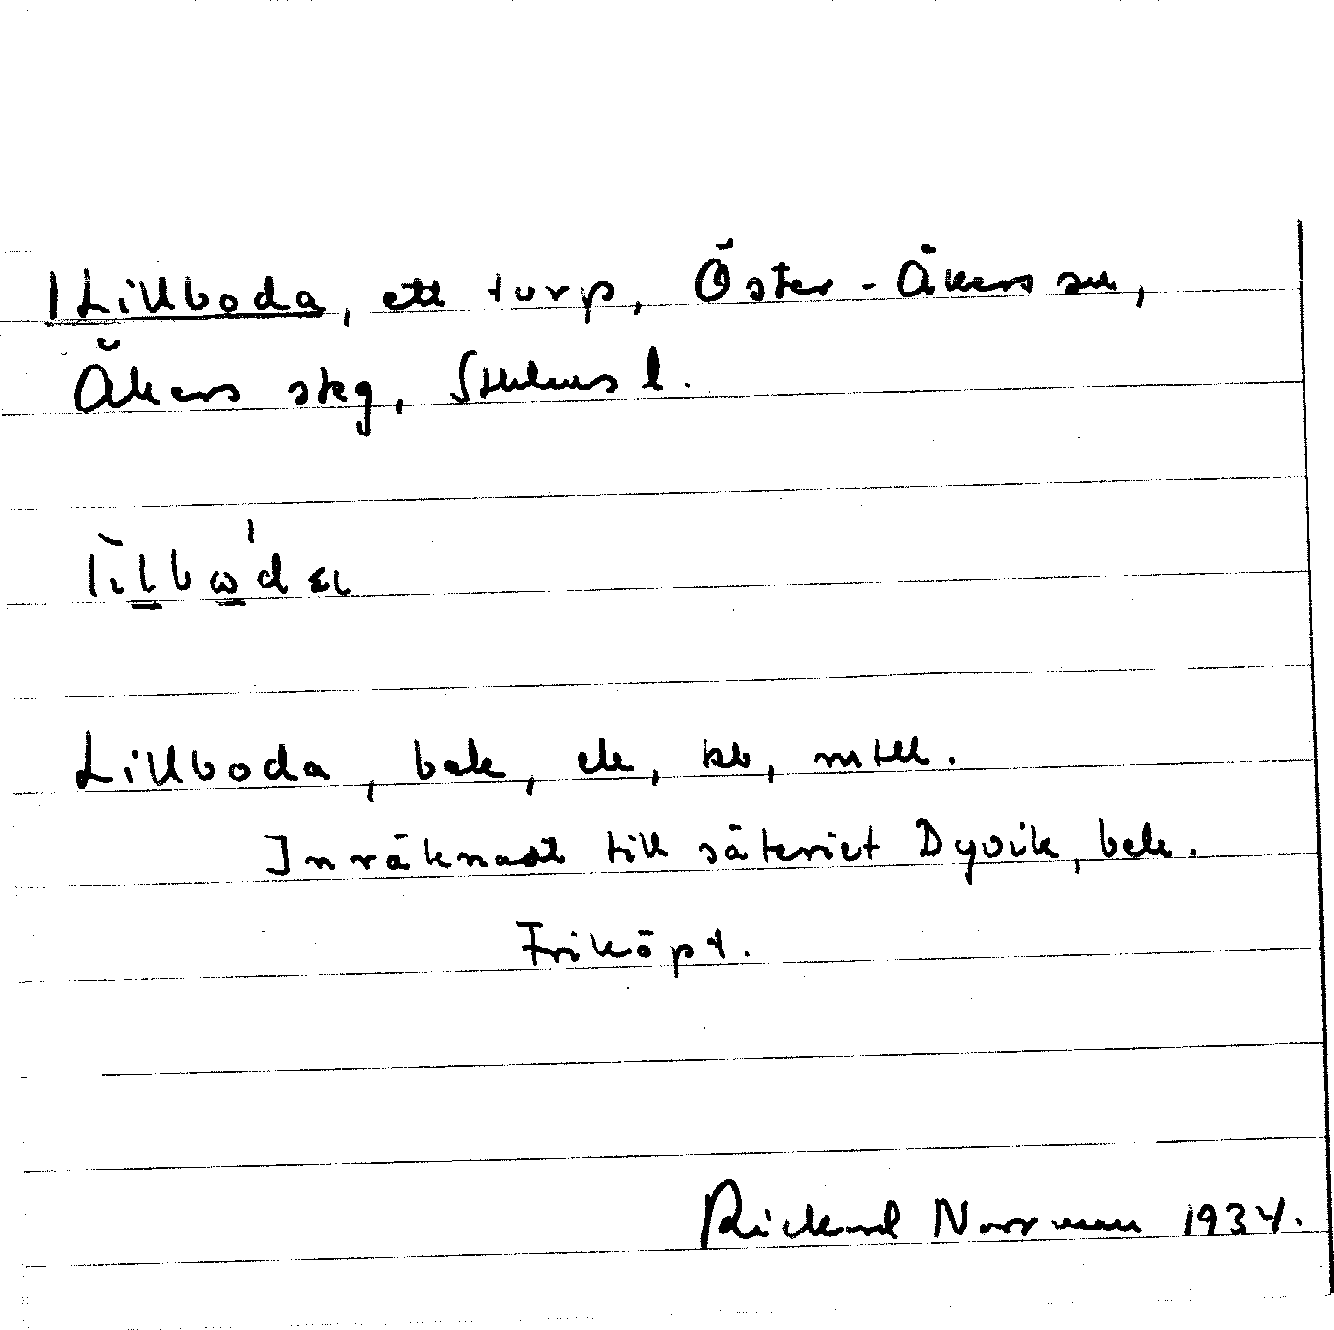 Lillboda, ett torp, Öster-Åkers sn,
Åkers skg, Sthlms l.
Lillboda, bek, ek, kb, mtll.
Inräknadt till säteriet Dyvik, bek.
Friköpt.
Rickard Norrman 1934.